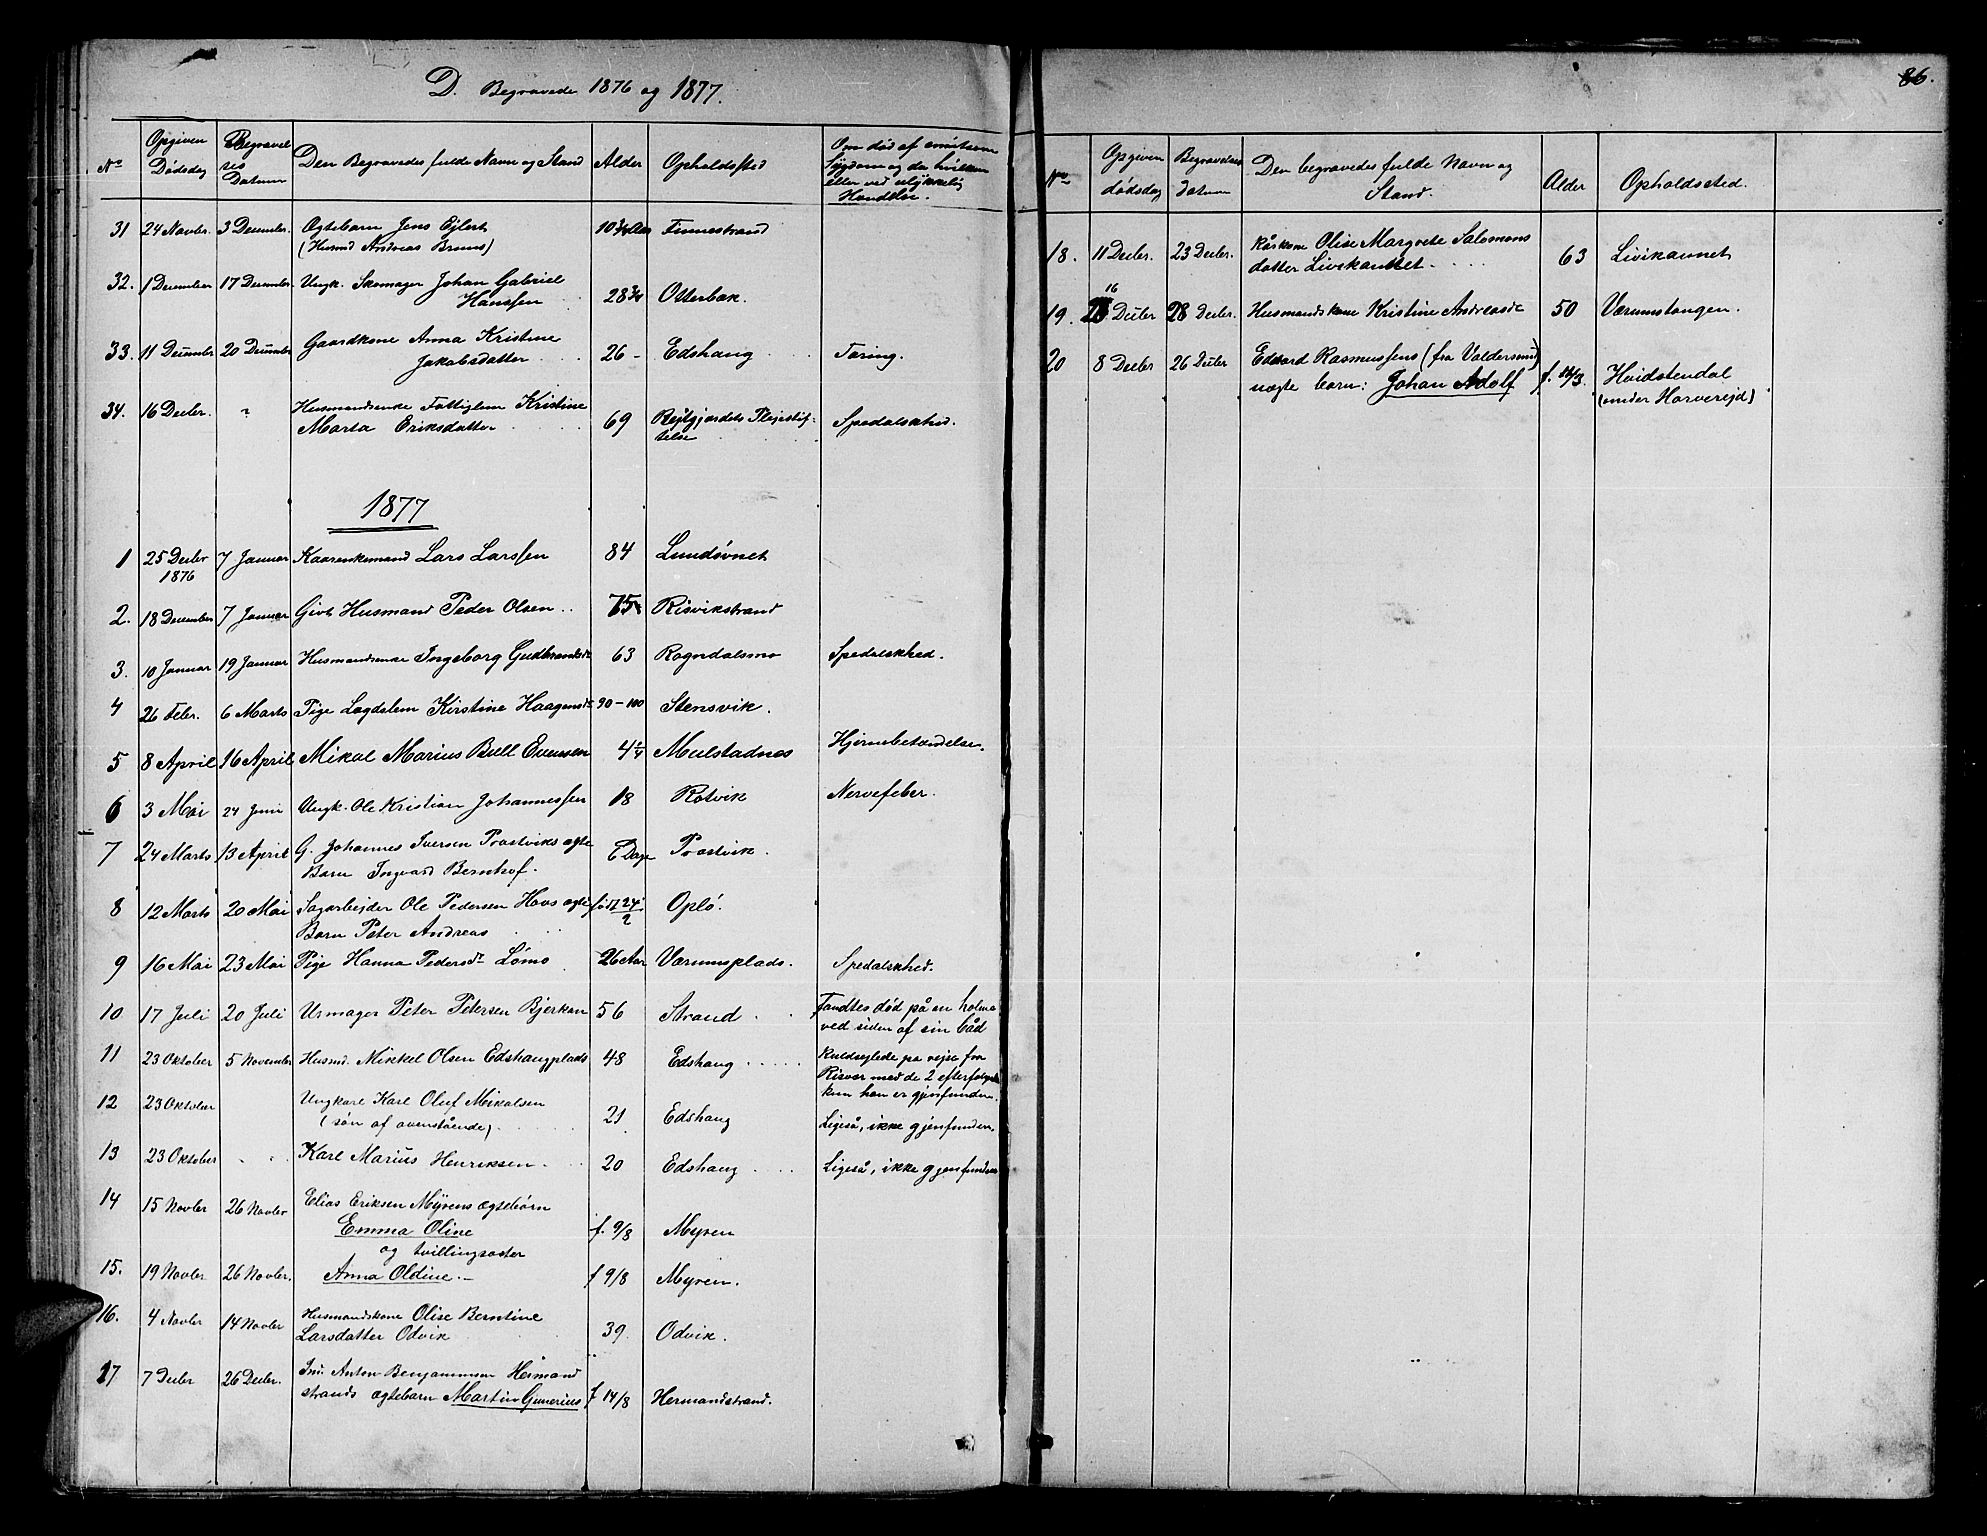 D. Begravede 1876 og 1877.
No Opgiven Dødsdag Begravelses Datum Den Begravedes fulde Navn og Stand Alder Opholdssted Om død af smitsom Sygdom og da hvilken eller ved ulykkelig Hændelse.
31 24 Novbr. 3 December. Ægtebarn Jens Ejlert 10 3/4 Aar Finnestrand
(Husmd Andreas Bruns)
32. 1 December 17 December. Ungk. Skomager Johan Gabriel
Hanssen 28 3/4 Otterbak.
33. 11 December 20 December Gaardkone Anna Kristine
Jakobsdatter 26 - Edshaug Tæring.
34. 16 Decbr. " Husmandsenke Fattiglem Kristine
Marta Eriksdatter 69 Rejtgjærdets Plejestiftelse Spedalskhed.
1877
1 25 Decbr 1876 7 Januar Kaarenkemand Lars Larssen 84 Lundsvnet
2. 18 December 7 Januar Givt Husmand Peder Olsen 75 Risvikstrand
3. 10 Januar 19 Januar Husmandsenke Ingeborg Gudbrandsd. 63 Rogndalsmo Spedalskhed.
4 26 Febr. 6 Marts Pige Lægdslem Kirstine Haagensdr 90-100 Stensvik.
5 8 April 16 April Mikal Marius Bull Evensen 4 1/4 Mulstadnes Hjernebetændelse.
6 3 Mai 24 Juni Ungk. Ole Kristian Johannessen 18 Rotvik Nervefeber.
7 24 Marts 13 April G. Johannes Iversen Prastviks ægte
Barn Ingvard Bernhof. 6 Dage Prastvik.
8 12 Marts 20 Mai Sagarbejder Ole Pedersen Hovs ægte født 24/2 Oplø.
Barn Peter Andreas
9 16 Mai 23 Mai Pige Hanna Pedersdr Lømo 26 Aar Værumsplads. Spedalskhed.
10 17 Juli 20 Juli Urmager Peter Petersen Bjerkan 56 Strand Fandtes død på en holme
ved siden af sin båd
11 23 Oktober 5 November Husmd. Mikkel Olsen Edshaugplads 48 Edshaug Kuldseglede på rejse fra
Risvær med de 2 efterfølgende
kun han er gjenfunden.
12 23 Oktober Ungkarl Karl Oluf Mikalsen
(søn af ovenstående) 21 Edshaug Ligeså, ikke gjenfunden.
13 23 Oktober " " Karl Marius Henriksen 20 Edshaug Ligeså, ikke gjenfunden
14 15 Novbr 26 Novbr Elias Eriksen Myrens ægtebørn
Emma Oline f. 9/8 Myren
og tvillingsøster
15. 19 Novbr 26 Novbr. Anna Oldine. f 9/8 Myren.
16. 4 Novbr 14 Novbr Husmandskone Olise Berntine
Larsdatter Odvik 39 Odvik.
17 7 Decbr 26 Decbr. Anton Benjaminsen Hermand
strands ægtebarn Martin Gunerius f 14/8 Hermandstrand.
86.
No Opgiven dødsdag Begravelses Datum Den begravedes fulde Navn og Stand. Alder Opholdssted.
18. 11 Decbr. 23 Decbr. Kårkone Olise Margrete Salomons
datter Livikauntet 63 Livikaunet
19. 16 Decbr 28 Decbr. Husmandskone Kristine Andreasdr 50 Værumstangen.
20 8 Decbr 26 Decbr Edvard Rasmussens (fra Valdersund)
uægte barn: Johan Adolf f. 14/3. Hvidstendal
(under Horverejd)